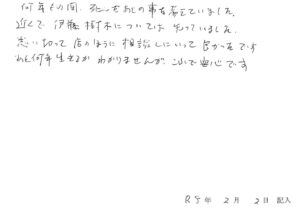 何年もの間、死したあとの事を考えていました。
近くで、伊藤樹木については知っていました。
思い切って店のほうに相談しにいって良かったです
あと何年生きるかわかりませんが、これで安心です
R5年 2月 2日 記入